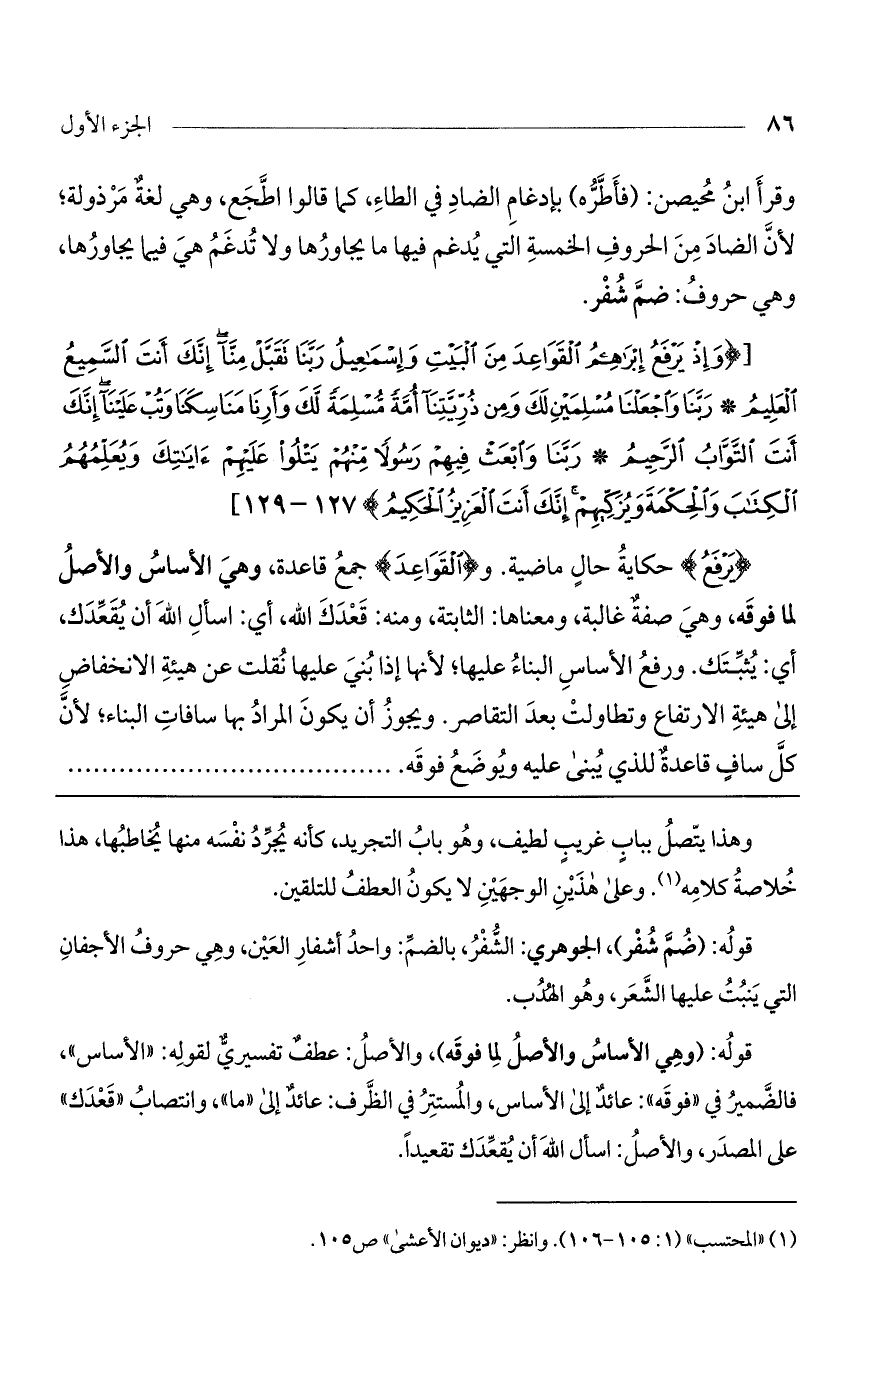 ٨٦ الجزء الأول
وقرأَ ابنُ مُحيصن: (فأَطَّرُّه) بإدغامِ الضادِ في الطاءِ، كما قالوا اطَّجَع، وهي لغةٌ مَرْذولة؛
لأنَّ الضادَ مِنَ الحروفِ الخمسةِ التي يُدغم فيها ما يجاورُها ولا تُدغَمُ هيَ فيما يجاورُها،
وهي حروفُ: ضمَّ شُفْر.
[﴿وَإِذْ يَرْفَعُ إِبْرَٰهِـۧمُ ٱلْقَوَاعِدَ مِنَ ٱلْبَيْتِ وَإِسْمَـٰعِيلُ رَبَّنَا تَقَبَّلْ مِنَّآۖ إِنَّكَ أَنتَ ٱلسَّمِيعُ
ٱلْعَلِيمُ * رَبَّنَا وَٱجْعَلْنَا مُسْلِمَيْنِ لَكَ وَمِن ذُرِّيَّتِنَآ أُمَّةً مُّسْلِمَةً لَّكَ وَأَرِنَا مَنَاسِكَنَا وَتُبْ عَلَيْنَآۖ إِنَّكَ
أَنتَ ٱلتَّوَّابُ ٱلرَّحِيمُ * رَبَّنَا وَٱبْعَثْ فِيهِمْ رَسُولًا مِّنْهُمْ يَتْلُوا۟ عَلَيْهِمْ ءَايَـٰتِكَ وَيُعَلِّمُهُمُ
ٱلْكِتَـٰبَ وَٱلْحِكْمَةَ وَيُزَكِّيهِمْۚ إِنَّكَ أَنتَ ٱلْعَزِيزُ ٱلْحَكِيمُ﴾ ١٢٧ – ١٢٩]
﴿يَرْفَعُ﴾ حكايةُ حالٍ ماضية. و﴿ٱلْقَوَاعِدَ﴾ جمعُ قاعدة، وهيَ الأساسُ والأصلُ
لما فوقَه، وهيَ صفةٌ غالبة، ومعناها: الثابتة، ومنه: قَعْدَكَ الله، أي: اسألِ اللهَ أن يُقَعِّدَك،
أي: يُثبِّتَك. ورفعُ الأساسِ البناءُ عليها؛ لأنها إذا بُنيَ عليها نُقلت عن هيئةِ الانخفاضِ
إلىٰ هيئةِ الارتفاع وتطاولتْ بعدَ التقاصر. ويجوزُ أن يكونَ المرادُ بها سافاتِ البناء؛ لأنَّ
كلَّ سافٍ قاعدةٌ للذي يُبنىٰ عليه ويُوضَعُ فوقَه. ......................................
وهذا يتّصلُ ببابٍ غريبٍ لطيف، وهُو بابُ التجريد، كأنه يُجرِّدُ نفْسَه منها يُخاطبُها، هذا
خُلاصةُ كلامِه(١). وعلىٰ هٰذَيْنِ الوجهَيْنِ لا يكونُ العطفُ للتلقين.
قولُه: (ضُمَّ شُفْر)، الجوهري: الشُّفْرُ، بالضمِّ: واحدُ أشفارِ العَيْن، وهِي حروفُ الأجفانِ
التي يَنبُتُ عليها الشَّعَر، وهُو الهُدُب.
قولُه: (وهِي الأساسُ والأصلُ لِما فوقَه)، والأصلُ: عطفٌ تفسيريٌّ لقولِه: «الأساس»،
فالضَّميرُ في «فوقَه»: عائدٌ إلىٰ الأساس، والمُستتِرُ في الظَّرف: عائدٌ إلىٰ «ما»، وانتصابُ «قَعْدَك»
على المصدَر، والأصلُ: اسأل اللهَ أن يُقعِّدَك تقعيداً.
(١) «المحتسب» (١: ١٠٥-١٠٦). وانظر: «ديوان الأعشىٰ» ص١٠٥.